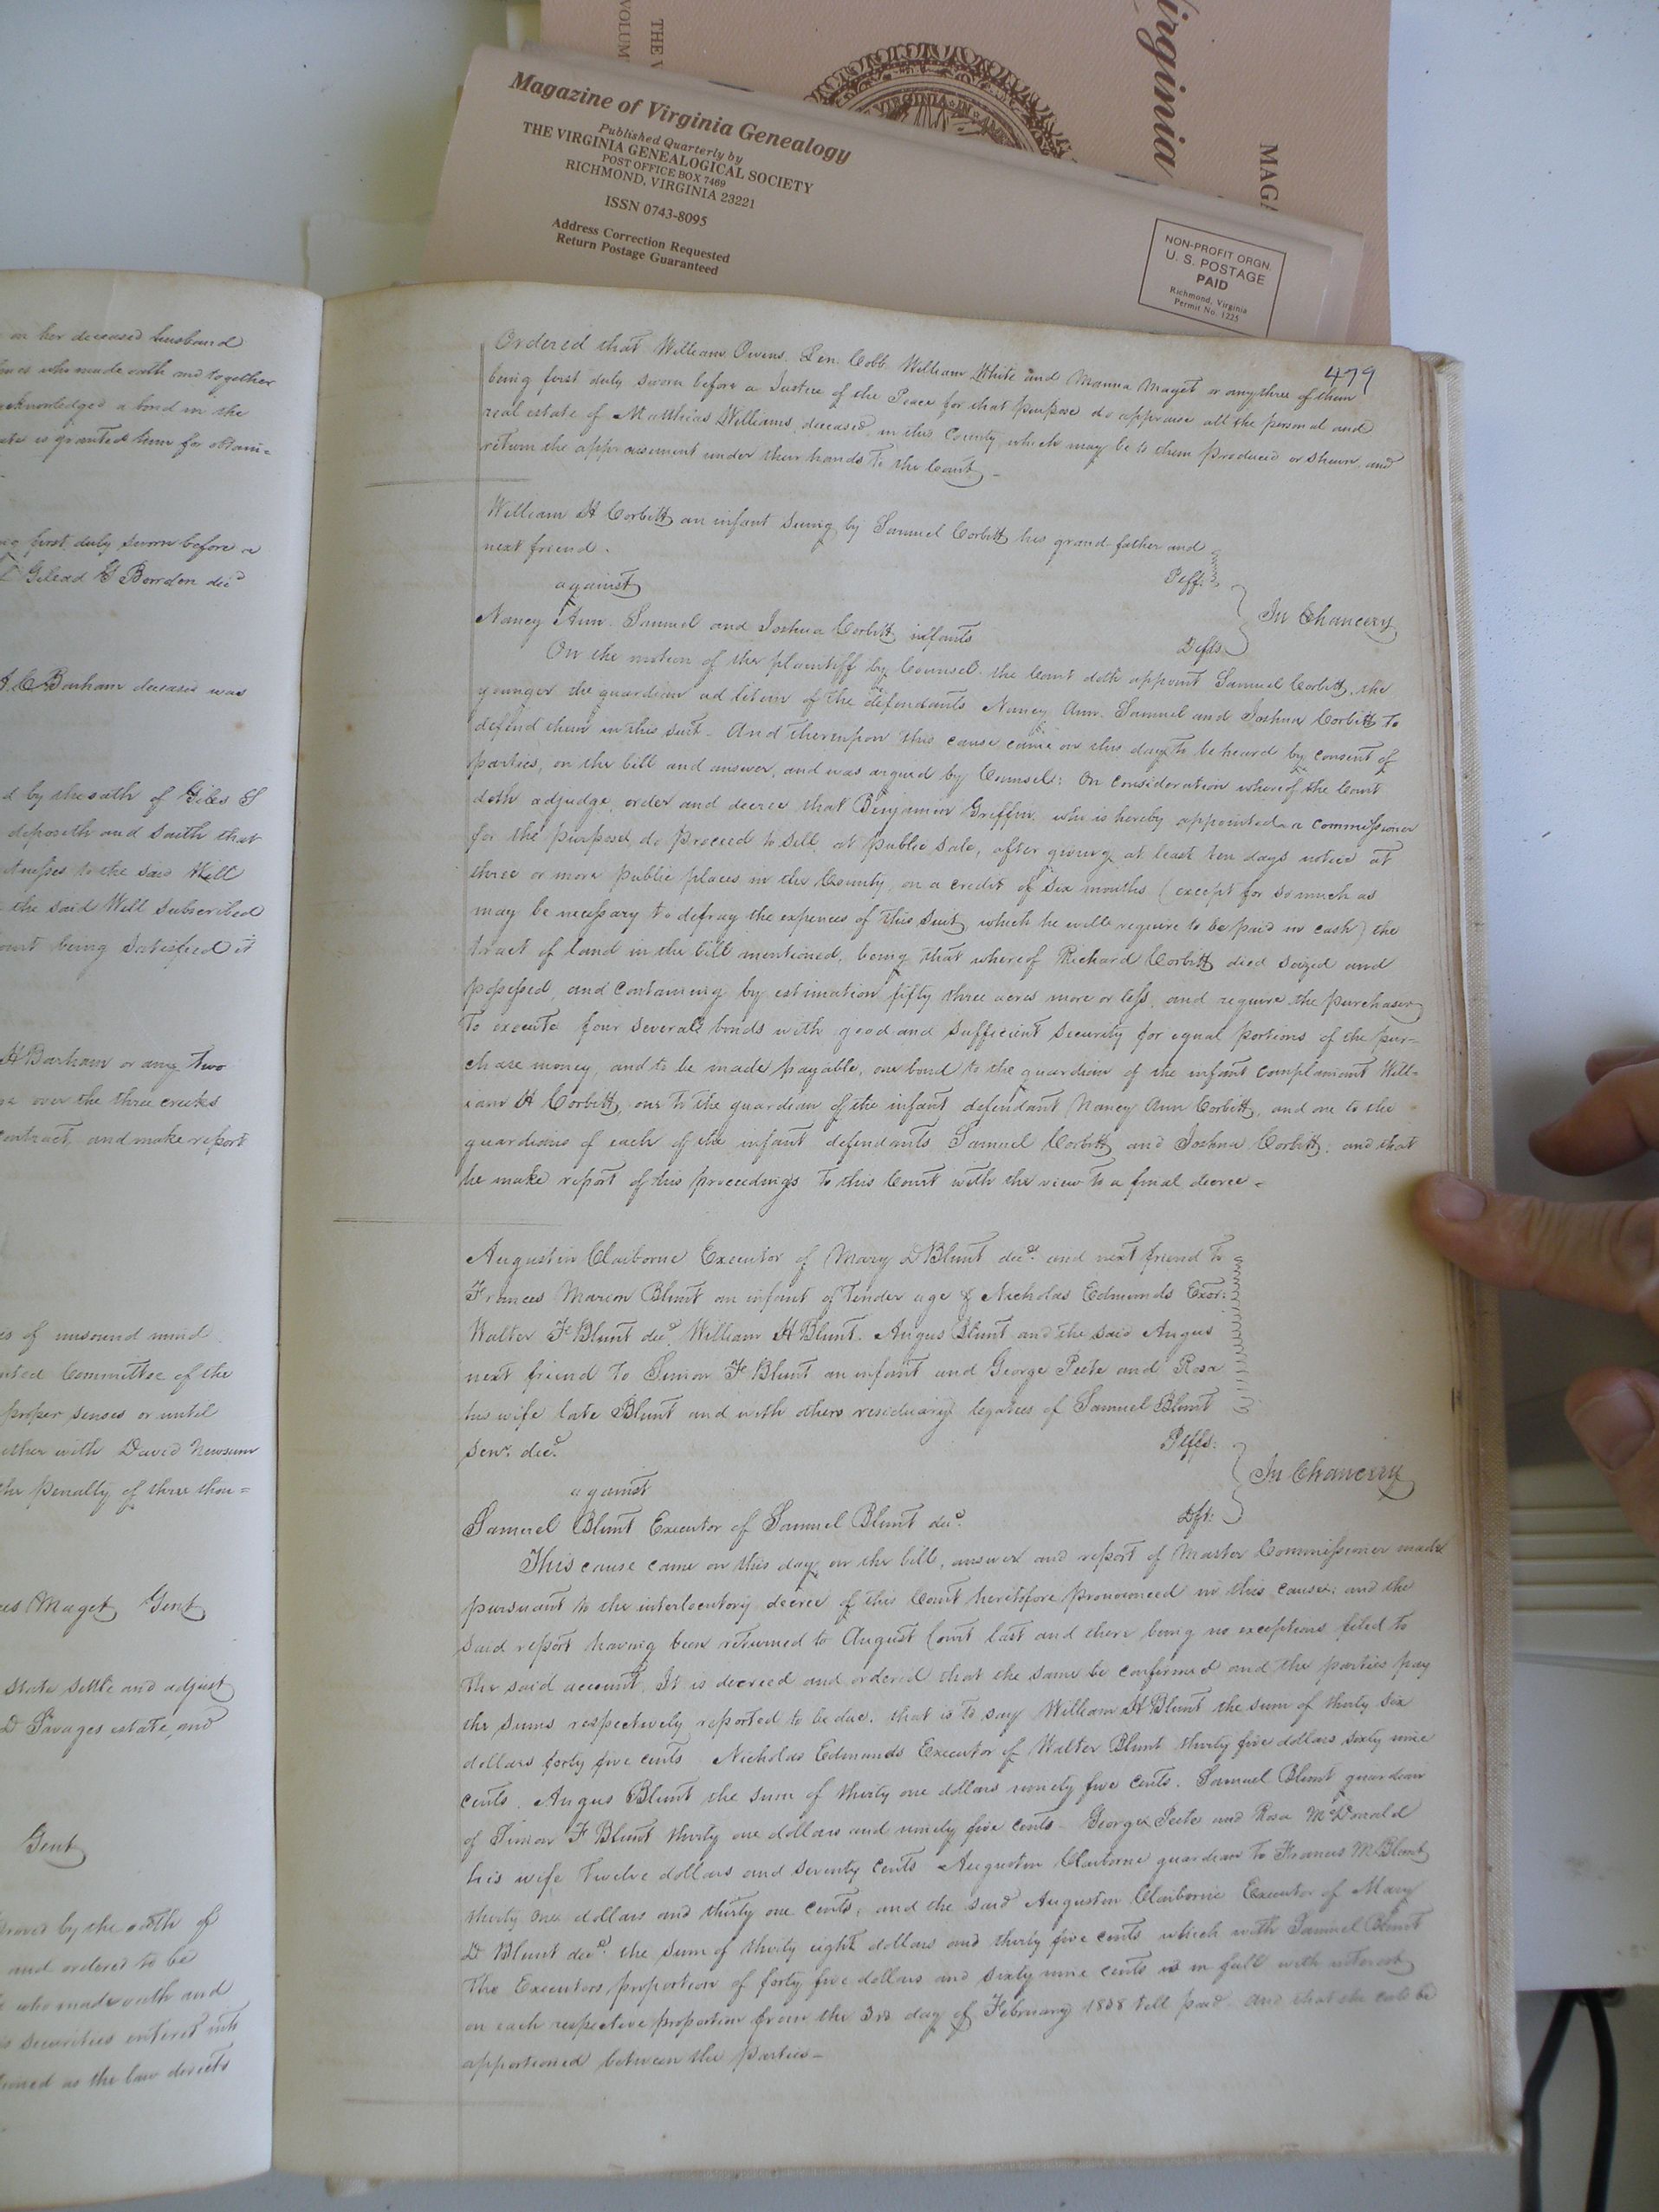 THE V
VOLUM
Virginia
MAGA
VIRGINIA IN
Magazine of Virginia Genealogy
Published Quarterly by
THE VIRGINIA GENEALOGICAL SOCIETY
POST OFFICE BOX 7469
RICHMOND, VIRGINIA 23221
ISSN 0743-8095
Address Correction Requested
Return Postage Guaranteed
NON-PROFIT ORGN.
U. S. POSTAGE
PAID
Richmond, Virginia
Permit No. 1225
on her deceased husband
who made oath and together
acknowledged a bond in the
is granted him for obtain=
first duly sworn before a
Gilead G Borden decd
C Barham deceased was
d by the oath of Giles S
deposeth and saith that
witnesses to the said Will
the said Will subscribed
ourt being satisfied it
H Barham or any two
over the three creeks
contract, and make report
is of unsound mind
Committee of the
proper senses or until
ether with David Newsum
the penalty of three thou=
Maget Gent
state settle and adjust
D Savages estate, and
Gent
proved by the oath of
and ordered to be
who made oath and
securities entered into
as the law directs
479
Ordered that William Owens, Len. Cobb William White and Manna Maget or any three of them
being first duly sworn before a Justice of the Peace for that purpose do appraise all the personal and
real estate of Matthias Williams, deceased, in this County which may be to them produced or shewn, and
return the appraisement under their hands to the Court –
William H Corbitt an infant suing by Samuel Corbitt his grand father and
next friend.
Plff.
against
In Chancery
Nancy Ann, Samuel and Joshua Corbitt infants
Defts.
On the motion of the plaintiff by Counsel, the Court doth appoint Samuel Corbitt, the
younger the guardian ad litem of the defendants Nancy Ann, Samuel and Joshua Corbitt to
defend them in this suit. And thereupon this cause came on this day to be heard by consent of
parties, on the bill and answer, and was argued by Counsel: On consideration whereof the Court
doth adjudge, order and decree that Benjamin Griffin, who is hereby appointed a commissioner
for the purpose, do proceed to sell, at public sale, after giving at least ten days notice at
three or more public places in the County, on a credit of six months (except for so much as
may be necessary to defray the expences of this suit, which he will require to be paid in cash) the
tract of land in the bill mentioned, being that whereof Richard Corbitt died seized and
possessed, and containing by estimation fifty three acres more or less, and require the purchaser
to execute four several bonds with good and sufficient security for equal portions of the pur=
chase money, and to be made payable, one bond to the guardian of the infant complainant Will=
iam H Corbitt, one to the guardian of the infant defendant Nancy Ann Corbitt, and one to the
guardians of each of the infant defendants Samuel Corbitt and Joshua Corbitt; and that
he make report of his proceedings to this Court with the view to a final decree –
Augustin Claiborne Executor of Mary D Blunt decd. and next friend to
Frances Marion Blunt an infant of tender age & Nicholas Edmunds Exor.
Walter F Blunt decd. William H Blunt. Angus Blunt and the said Angus
next friend to Simon F Blunt an infant and George Peete and Rosa
his wife late Blunt and with others residuary legatees of Samuel Blunt
Senr. decd.
Plffs.
against
In Chancery
Samuel Blunt Executor of Samuel Blunt decd.
Dft.
This cause came on this day on the bill, answer and report of Master Commissioner made
pursuant to the interlocutory decree of this Court heretofore pronounced in this cause: and the
said report having been returned to August Court last and there being no exceptions filed to
the said account. It is decreed and ordered that the same be confirmed and the parties pay
the sums respectively reported to be due. that is to say William H Blunt the sum of thirty six
dollars forty five cents. Nicholas Edmunds Executor of Walter Blunt thirty five dollars sixty nine
cents. Angus Blunt the sum of thirty one dollars ninety five cents. Samuel Blunt guardian
of Simon F Blunt thirty one dollars and ninety five cents. George Peete and Rosa McDonald
his wife twelve dollars and seventy cents Augustin Claiborne guardian to Frances M Blunt
thirty one dollars and thirty one cents, and the said Augustin Claiborne Executor of Mary
D Blunt decd. the sum of thirty eight dollars and thirty five cents which with Samuel Blunt
The Executors proportion of forty five dollars and sixty nine cents is in full with interest
on each respective proportion from the 3rd day of February 1838 till paid. and that the costs be
apportioned between the parties –